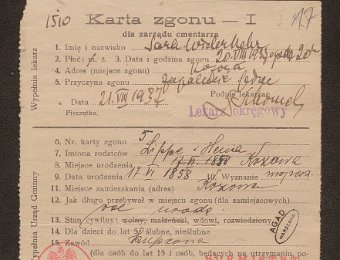 1510 Karta zgonu — I 17
dla zarządu cmentarza
Wypełnia lekarz
1. Imię i nazwisko Sara
2. Płeć: m. ż. 3. Data i godzina zgonu 20.VIII.1937
4. Adres (miejsce zgonu) Kozowa
5. Przyczyna zgonu zapalenie
Data 21.VIII 1937 Podpis lekarza
Pieczątka. Lekarz okręgowy
Wypełnia Urząd Gminny
6. Nr. karty zgonu 5
7. Imiona rodziców Lippe i Henia
8. Miejsce urodzenia Kozowa
9. Data urodzenia 17 VI 1858 10. Wyznanie mojż.
11. Miejsce zamieszkania (adres) Kozowa
12. Jak długo przebywał w miejscu zgonu (dla zamiejscowych)
od urodz.
13. Stan cywilny: wolny, małżeński, wdowi, rozwiedziony,
14. Dla dzieci do lat 5: ślubne, nieślubne
15. Zawód
(dla osób do lat 15 i osób, będących na utrzymaniu,
AGAD
WARSZAWA